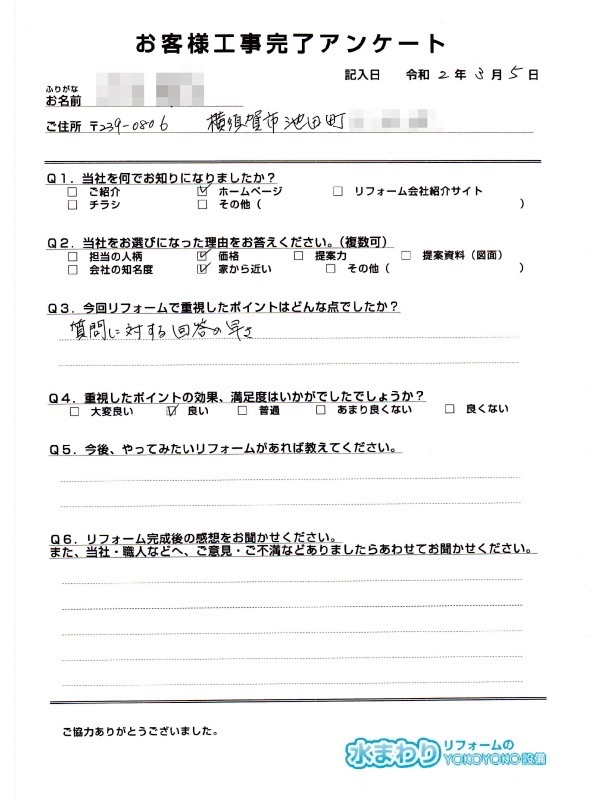 お客様工事完了アンケート
記入日 令和 2 年 3 月 5 日
ふりがな
お名前
ご住所 〒239-0806 横須賀市池田町
Q1．当社を何でお知りになりましたか？
□ ご紹介 ☑ ホームページ □ リフォーム会社紹介サイト
□ チラシ □ その他（ ）
Q2．当社をお選びになった理由をお答えください。（複数可）
□ 担当の人柄 ☑ 価格 □ 提案力 □ 提案資料（図面）
□ 会社の知名度 ☑ 家から近い □ その他（ ）
Q3．今回リフォームで重視したポイントはどんな点でしたか？
質問に対する回答の早さ
Q4．重視したポイントの効果、満足度はいかがでしたでしょうか？
□ 大変良い ☑ 良い □ 普通 □ あまり良くない □ 良くない
Q5．今後、やってみたいリフォームがあれば教えてください。
Q6．リフォーム完成後の感想をお聞かせください。
また、当社・職人などへ、ご意見・ご不満などありましたらあわせてお聞かせください。
ご協力ありがとうございました。
水まわりリフォームの
YOKOYOKO設備